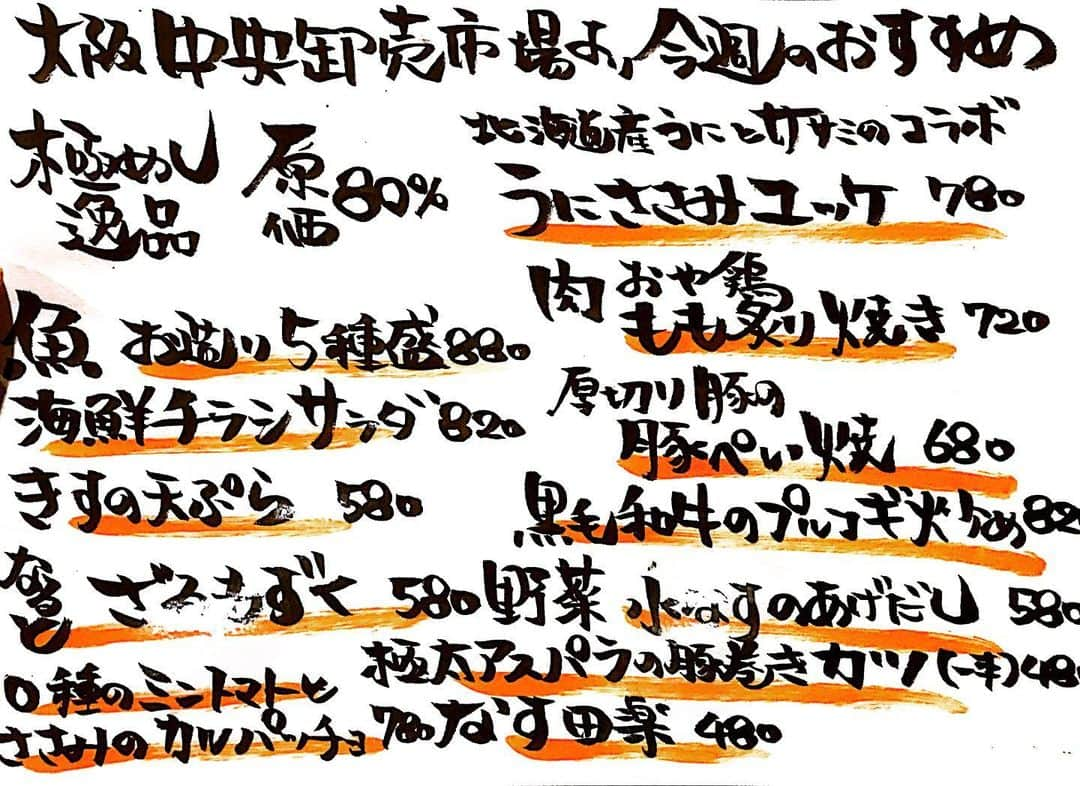 大阪中央卸売市場より今週のおすすめ
極めし
逸品
原価80%
魚 お造り5種盛 880
海鮮チラシサラダ 820
きすの天ぷら 580
なると もずく 580
0種のミニトマトと
ささみのカルパッチョ 780
北海道産うにとササミのコラボ
うにささみユッケ 780
肉 おや鶏
もも炙り焼き 720
厚切り豚の
豚ぺい焼 680
黒毛和牛のプルコギ炒め 82
野菜 水なすのあげだし 580
極太アスパラの豚巻きカツ(一本)48
なす田楽 480